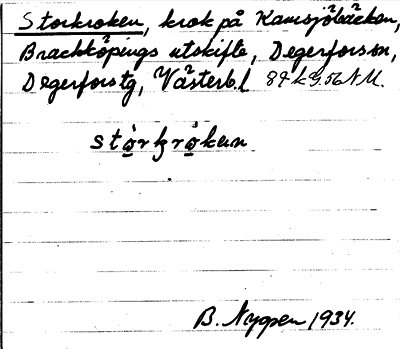 Storkroken, krok på Kamsjöbäcken,
Brackköpings utskifte, Degerforssn,
Degerforstg, Västerb.l
stò̱rkrò̱ken
B. Nygren 1934.